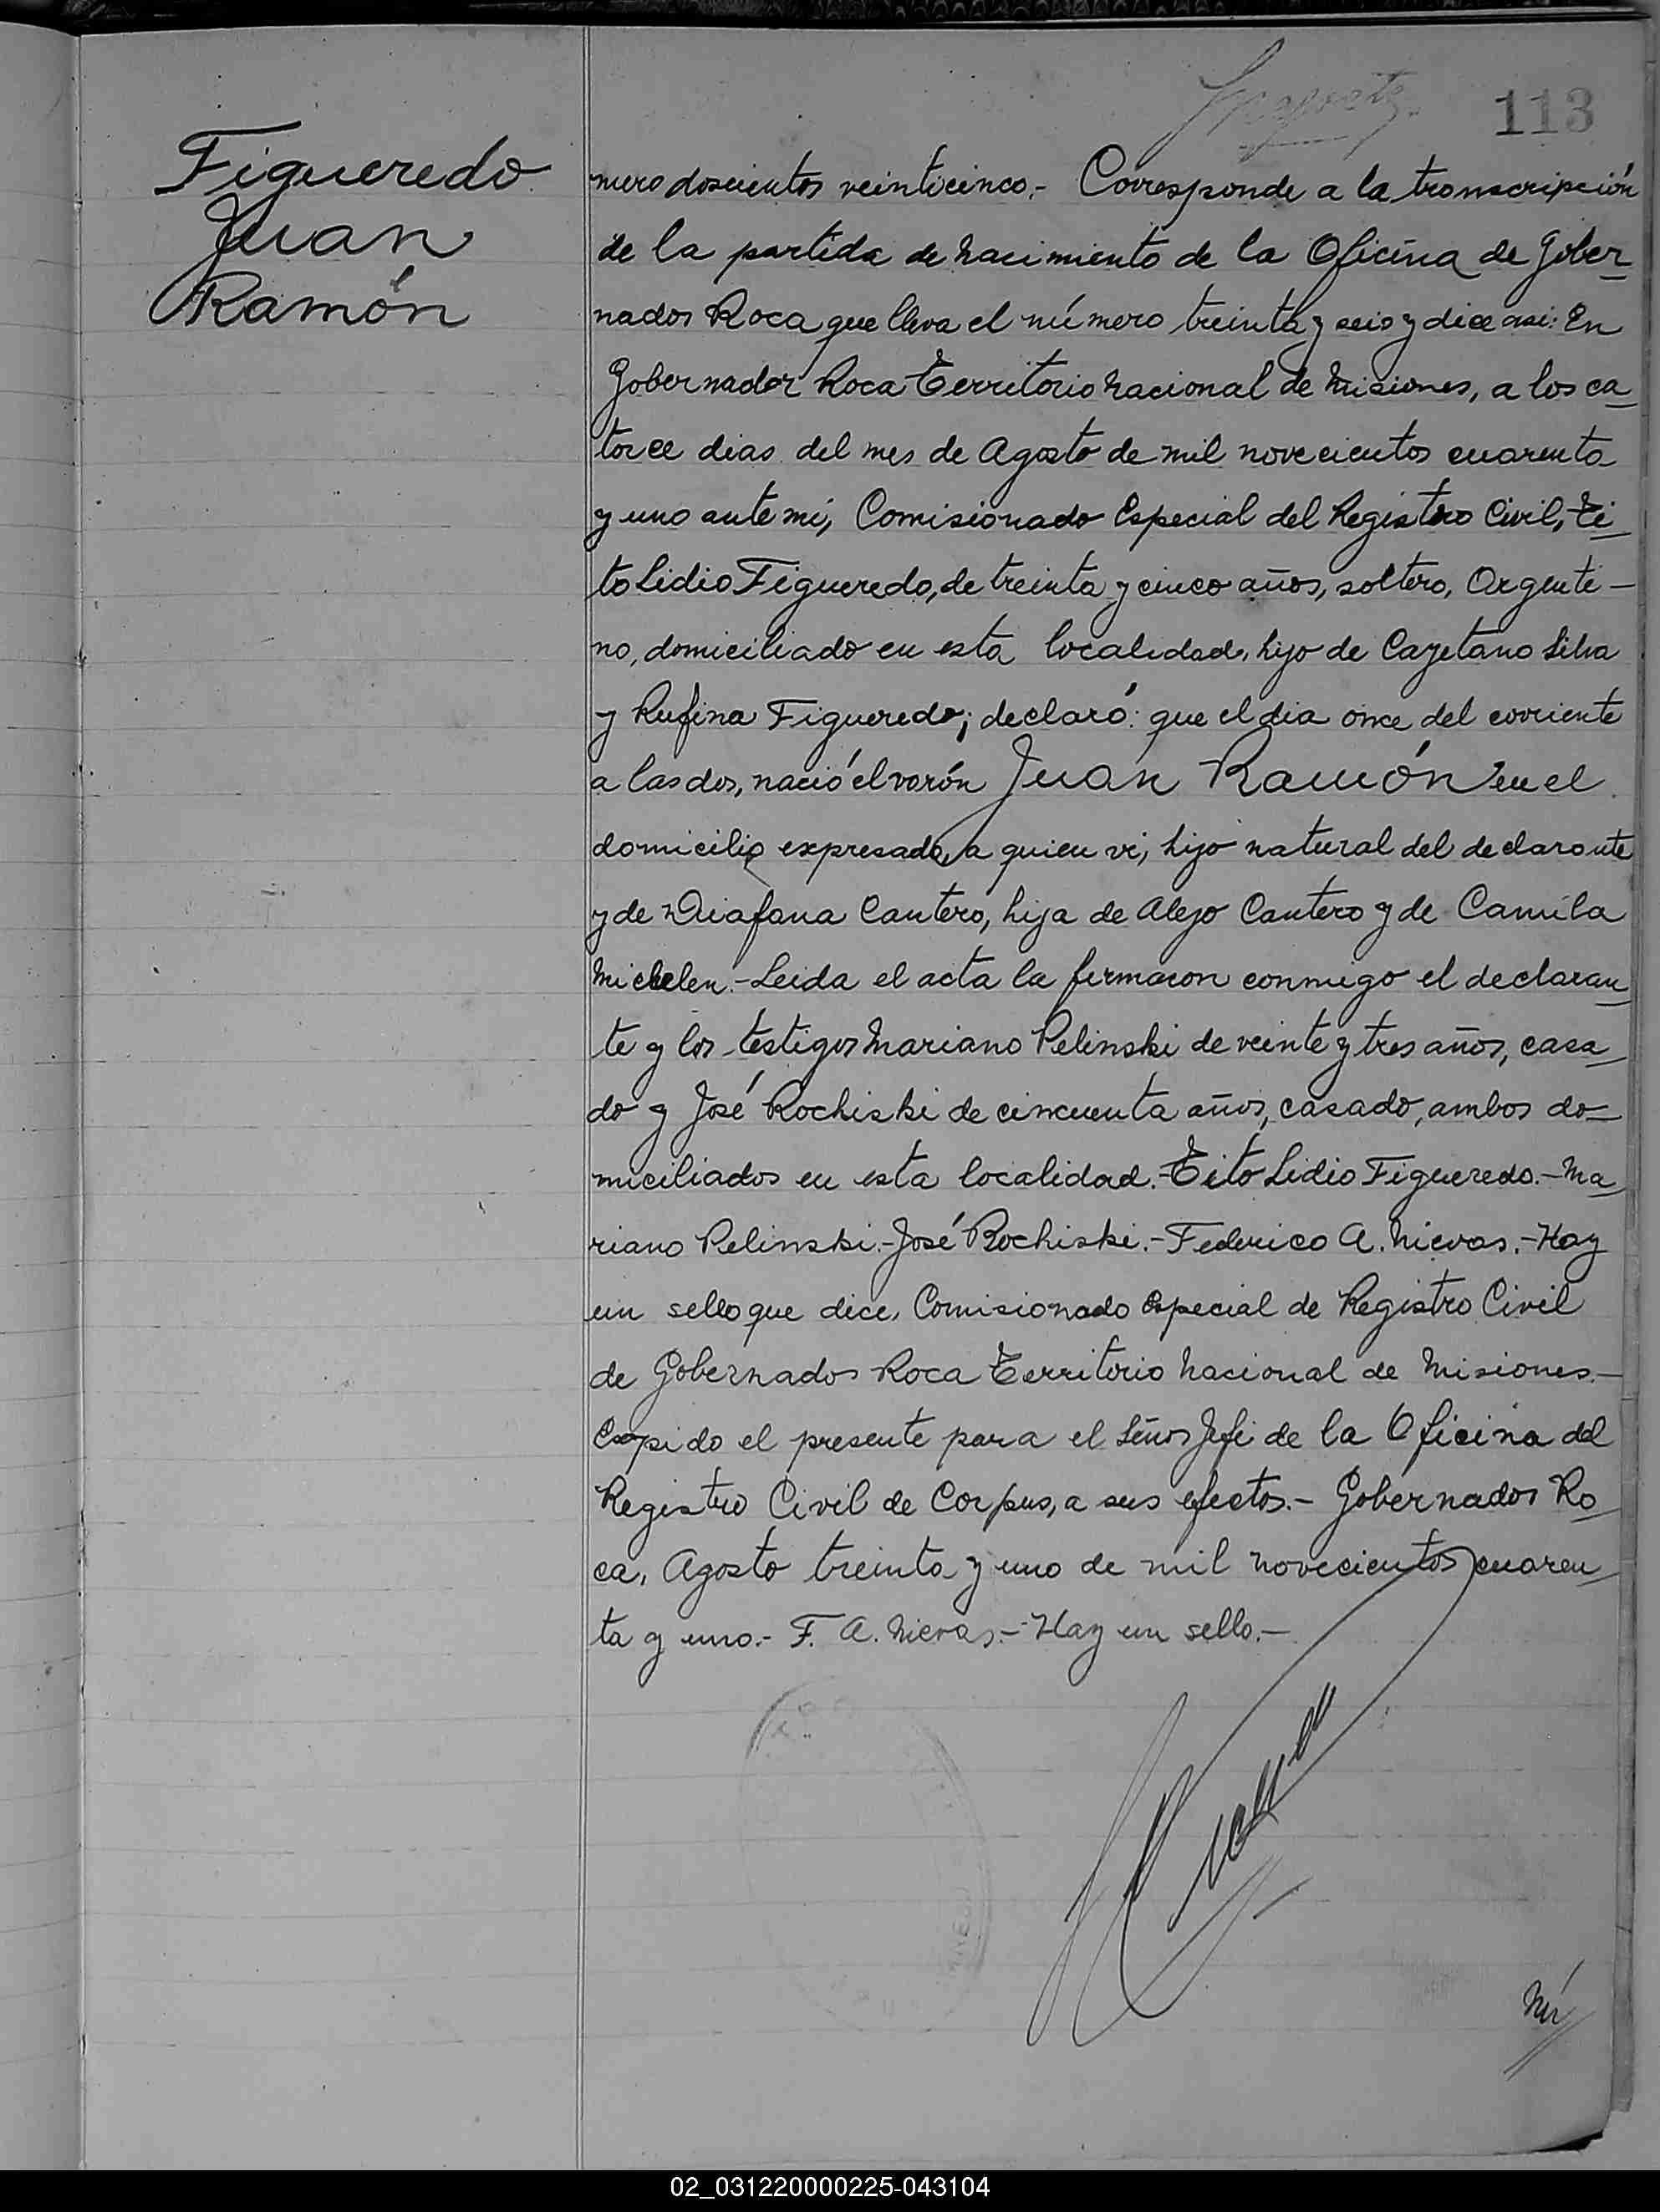 113
Figueredo
Juan
Ramón
mero doscientos veinticinco.- Corresponde a la transcripción
de la partida de nacimiento de la Oficina de Gober_
nador Roca que lleva el número treinta y seis y dice asi: En
Gobernador Roca Territorio Nacional de Misiones, a los ca_
torce dias del mes de Agosto de mil novecientos cuarenta
y uno ante mi, Comisionado Especial del Registro Civil, Ti_
to Lidio Figueredo, de treinta y cinco años, soltero, Argenti-
no, domiciliado en esta localidad, hijo de Cayetano Silva
y Rufina Figueredo; declaró: que el dia once del corriente
a las dos, nació el varón Juan Ramón en el
domicilio expresado, a quien vi, hijo natural del declarante
y de Diafana Cantero, hija de Alejo Cantero y de Camila
Michelen.- Leida el acta la firmaron conmigo el declaran_
te y los testigos Mariano Pelinski de veinte y tres años, casa_
do y José Rochiski de cincuenta años, casado, ambos do_
miciliados en esta localidad.- Tito Lidio Figueredo.- Ma_
riano Pelinski.- José Rochiski.- Federico A. Nievas.- Hay
un sello que dice, Comisionado Especial de Registro Civil
de Gobernador Roca Territorio Nacional de Misiones.-
Expido el presente para el Señor Jefe de la Oficina del
Registro Civil de Corpus, a sus efectos.- Gobernador Ro_
ca, Agosto treinta y uno de mil novecientos cuaren_
ta y uno.- F. A. Nievas.- Hay un sello.-
Nú
02_031220000225-043104